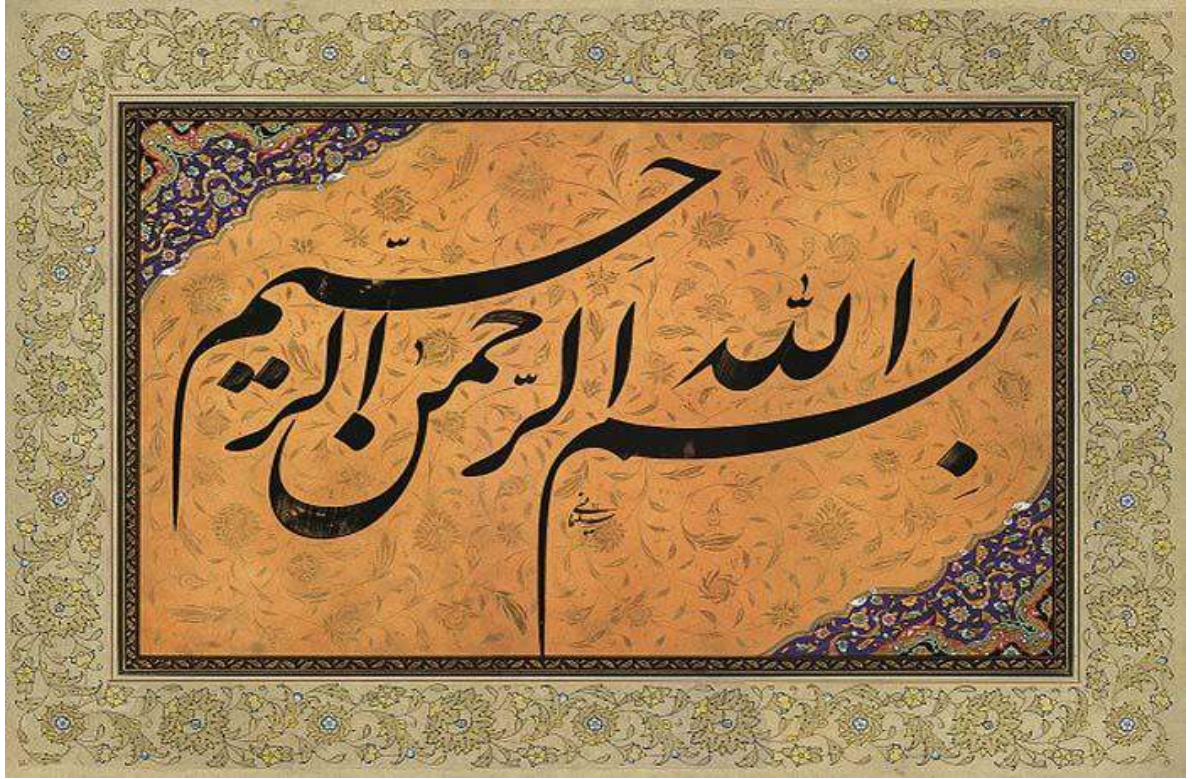 بسم الله الرَّحمن الرحیّم